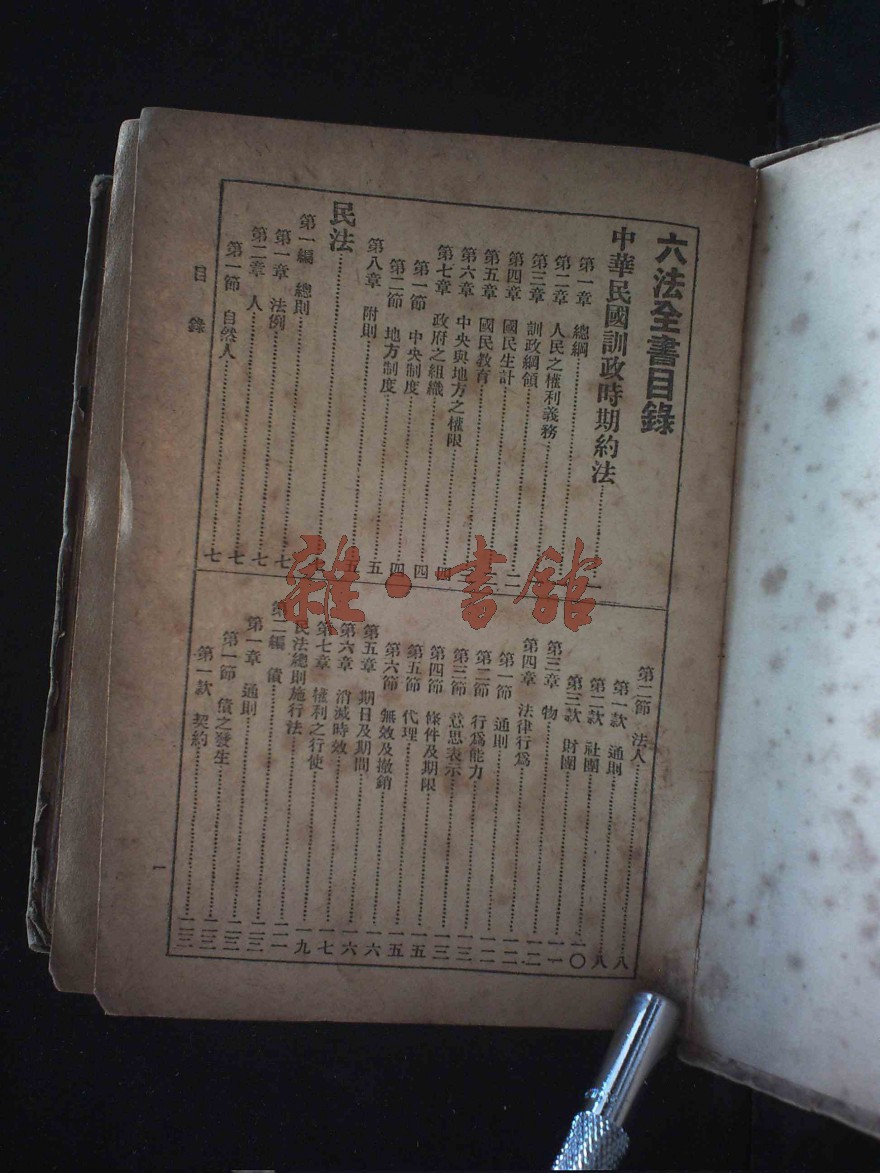 六法全書目錄
中華民國訓政時期約法
第一章 總綱
第二章 人民之權利義務
第三章 訓政綱領
第四章 國民生計 二
第五章 國民教育
第六章 中央與地方之權限
第七章 政府之組織 四
第一節 中央制度 四
第二節 地方制度 四
第八章 附則 五
民法 五
第一編 總則
第一章 法例 七
第二章 人 七
第一節 自然人 七
第二節 法人 八
第一款 通則 八
第二款 社團 八
第三款 財團 一〇
第三章 物 一一
第四章 法律行爲 一二
第一節 通則 一二
第二節 行爲能力 一二
第三節 意思表示 一三
第四節 條件及期限 一三
第五節 代理 一五
第六節 無效及撤銷 一五
第五章 期日及期間 一六
第六章 消滅時效 一六
第七章 權利之行使 一七
民法總則施行法 一九
第二編 債 二一
第一章 通則 二三
第一節 債之發生 二三
第一款 契約 二三
目錄
一
雜·書館